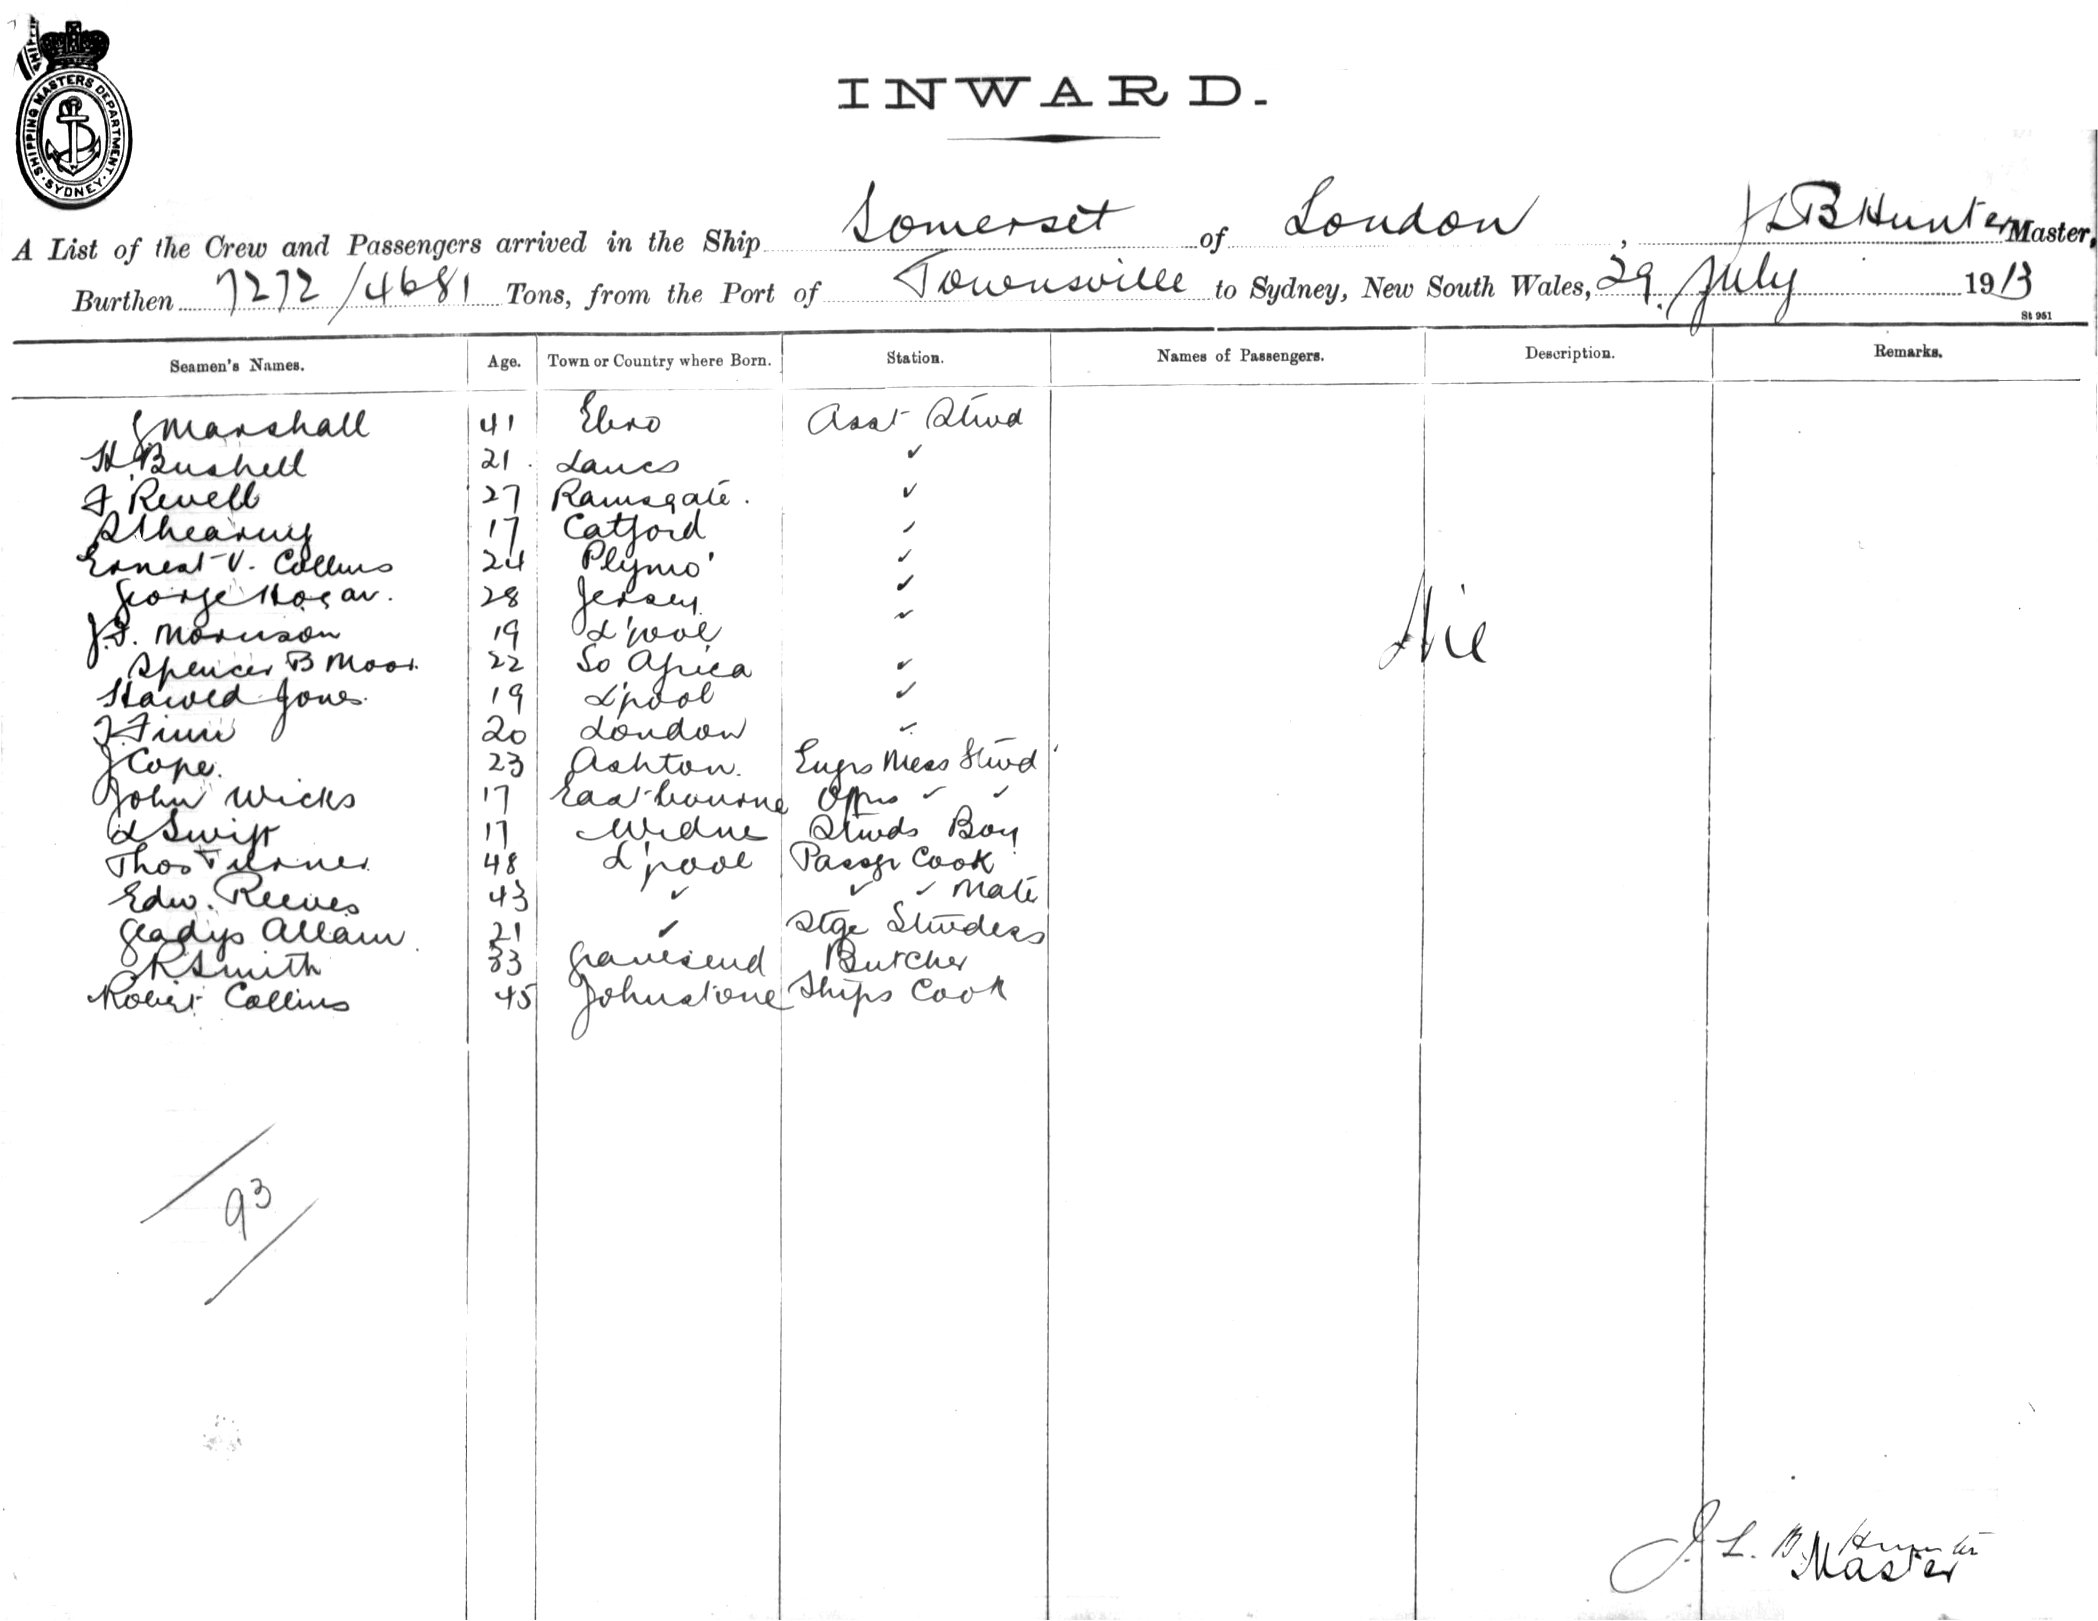 SHIPPING MASTERS DEPARTMENT · SYDNEY ·
INWARD.
A List of the Crew and Passengers arrived in the Ship Somerset of London, J L B Hunter Master,
Burthen 7272/4681 Tons, from the Port of Townsville to Sydney, New South Wales, 29. July 1913
St 951
Seamen's Names. Age. Town or Country where Born. Station. Names of Passengers. Description. Remarks.
J Marshall 41 Ebro Asst Stwd
H. Bushell 21 Lancs ✓
F Revell 27 Ramsgate. ✓
17 Catford ✓
Ernest V. Collins 24 Plymo' ✓
George Hogan. 28 Jersey ✓
J. F. Morrison 19 L'pool ✓
Spencer B Moor. 22 So Africa ✓
Harold Jones. 19 L'pool ✓
Finn 20 London ✓
J Cope. 23 Ashton. Engrs Mess Stwd
John Wicks 17 Eastbourne Offrs ✓ ✓
L Swift 17 Widne Stwds Boy
Thos Turner 48 L'pool Passgr Cook
Edw. Reeves 43 ✓ ✓ ✓ Mate
Gladys Allain 21 ✓ Stge Stwdess
R Smith 33 Gravesend Butcher
Robert Collins 45 Johnstone Ships Cook
Nil
93
J. L. B. Hunter
Master